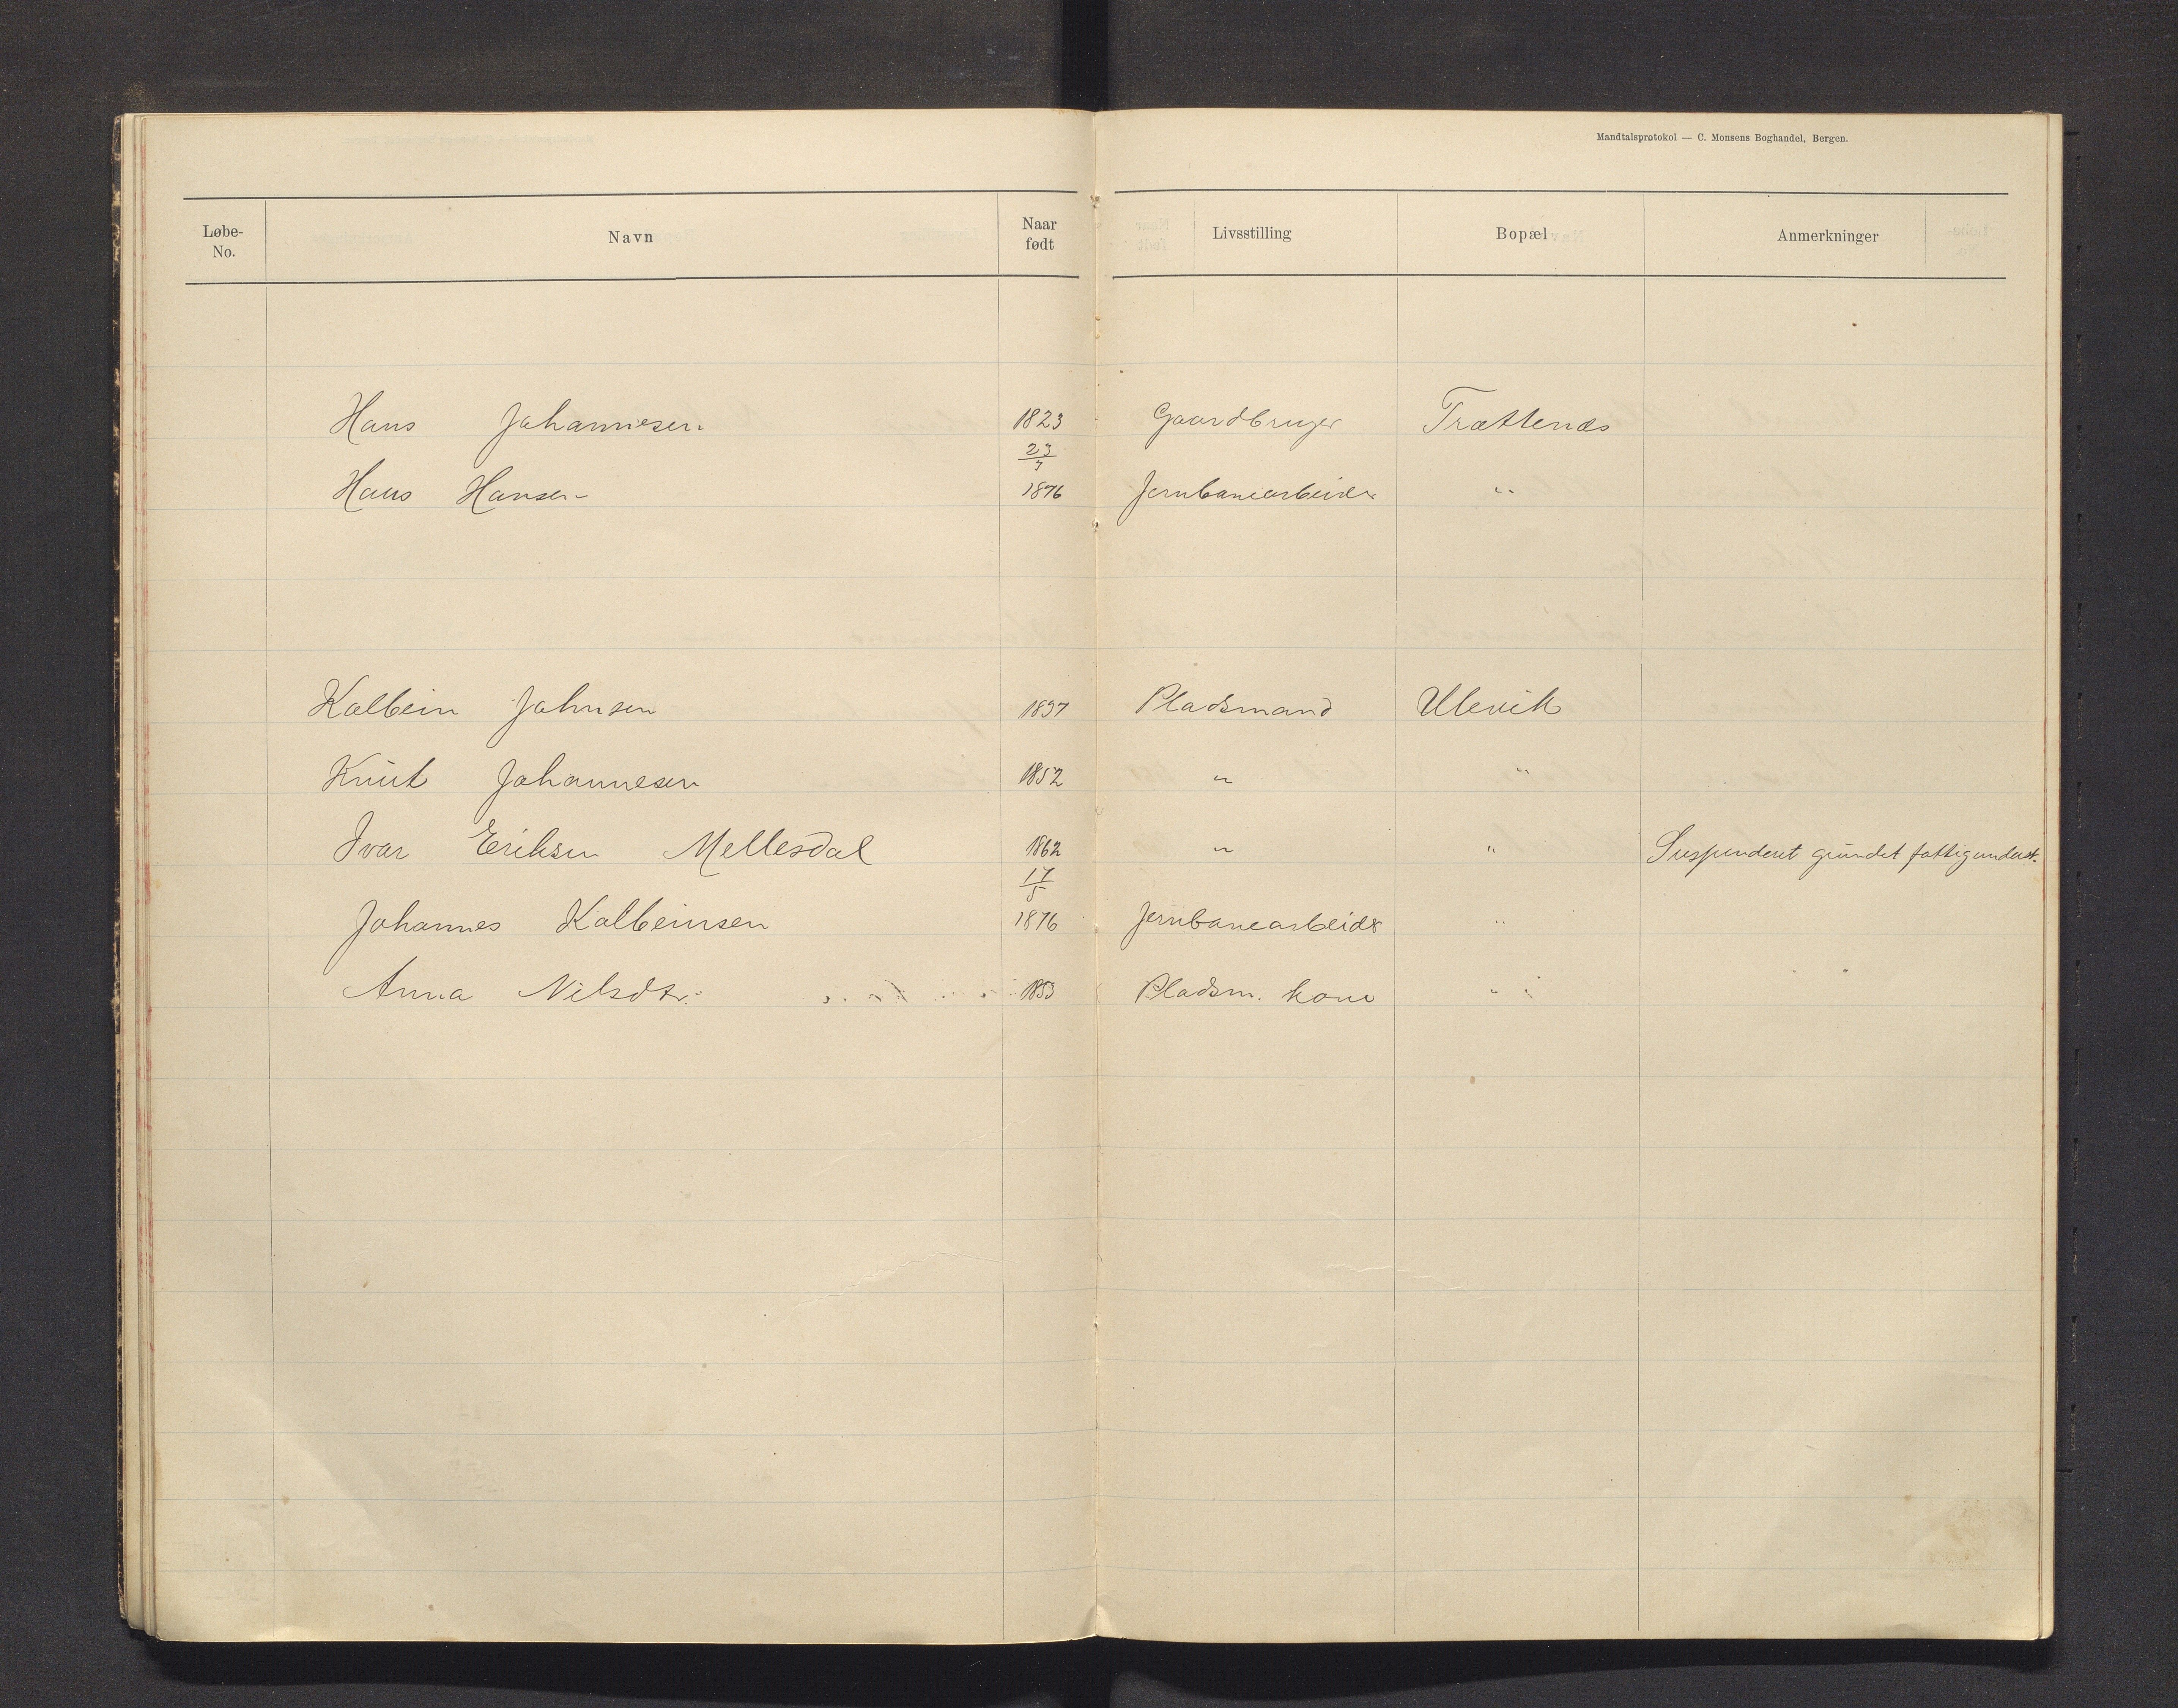 Mandtalsprotokol — C. Monsens Boghandel, Bergen.
Løbe-No. Navn Naar født Livsstilling Bopæl Anmerkninger
Hans Johannesen 1823 Gaardbruger Trættenæs
Hans Hansen 23/7 1876 Jernbanearbeider "
Kolbein Johnsen 1837 Pladsmand Ulevik
Knut Johannesen 1852 " "
Ivar Eriksen Mellesdal 1862 " " Suspenderet grundet fattigunderst.
Johannes Kolbeinsen 17/5 1876 Jernbanearbeider "
Anna Nilsdtr. 1853 Pladsm. kone "